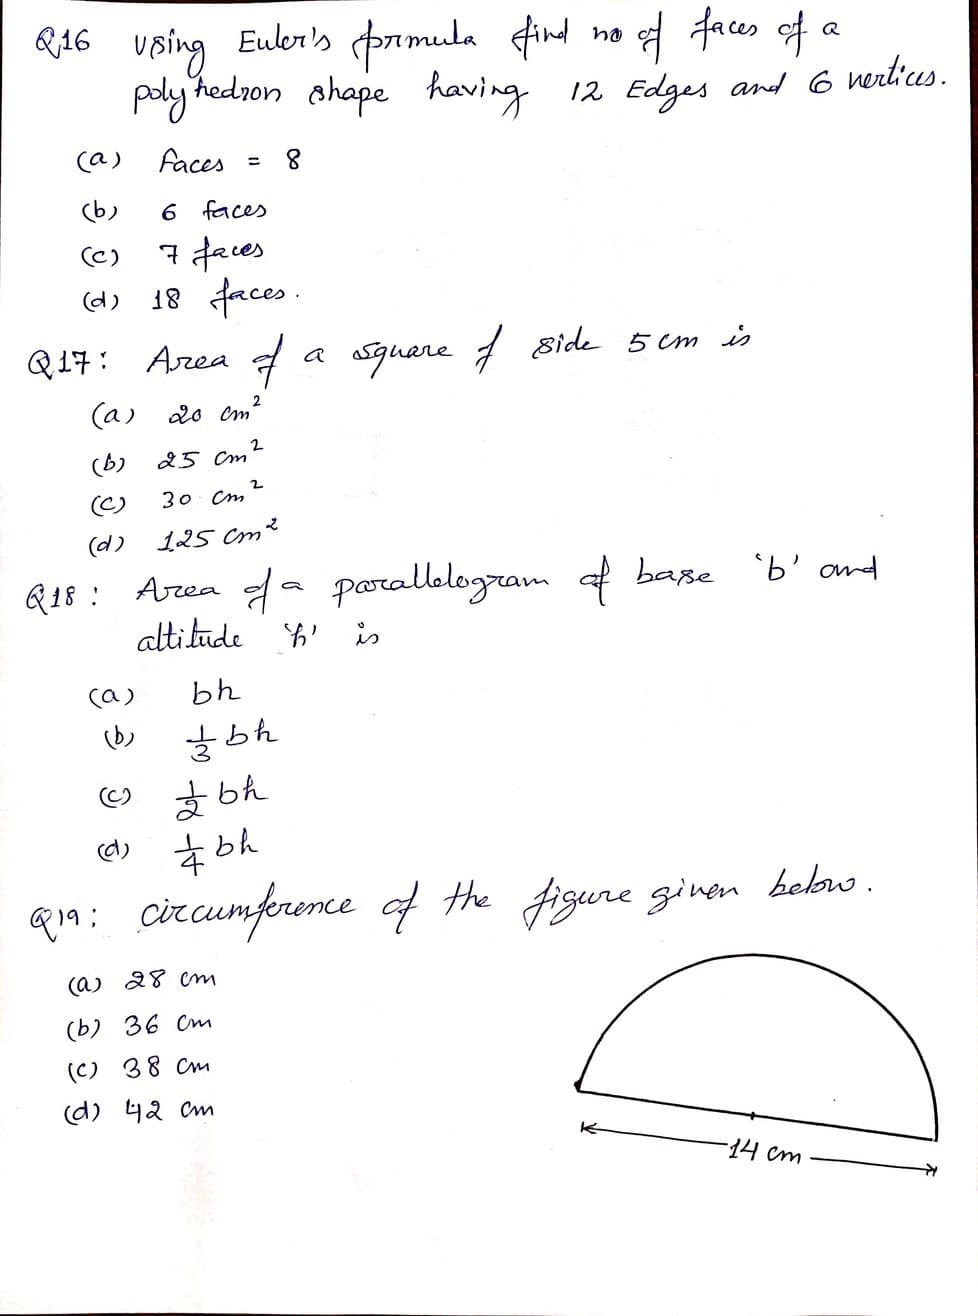 Q16 Using Euler's formula find no of faces of a
polyhedron shape having 12 Edges and 6 vertices.
(a) faces = 8
(b) 6 faces
(c) 7 faces
(d) 18 faces.
Q17: Area of a square of side 5 cm is
(a) 20 cm²
(b) 25 cm²
(c) 30 cm²
(d) 125 cm²
Q18: Area of a parallelogram of base 'b' and
altitude 'h' is
(a) bh
(b) 1/3 bh
(c) 1/2 bh
(d) 1/4 bh
Q19: circumference of the figure given below.
(a) 28 cm
(b) 36 cm
(c) 38 cm
(d) 42 cm
14 cm